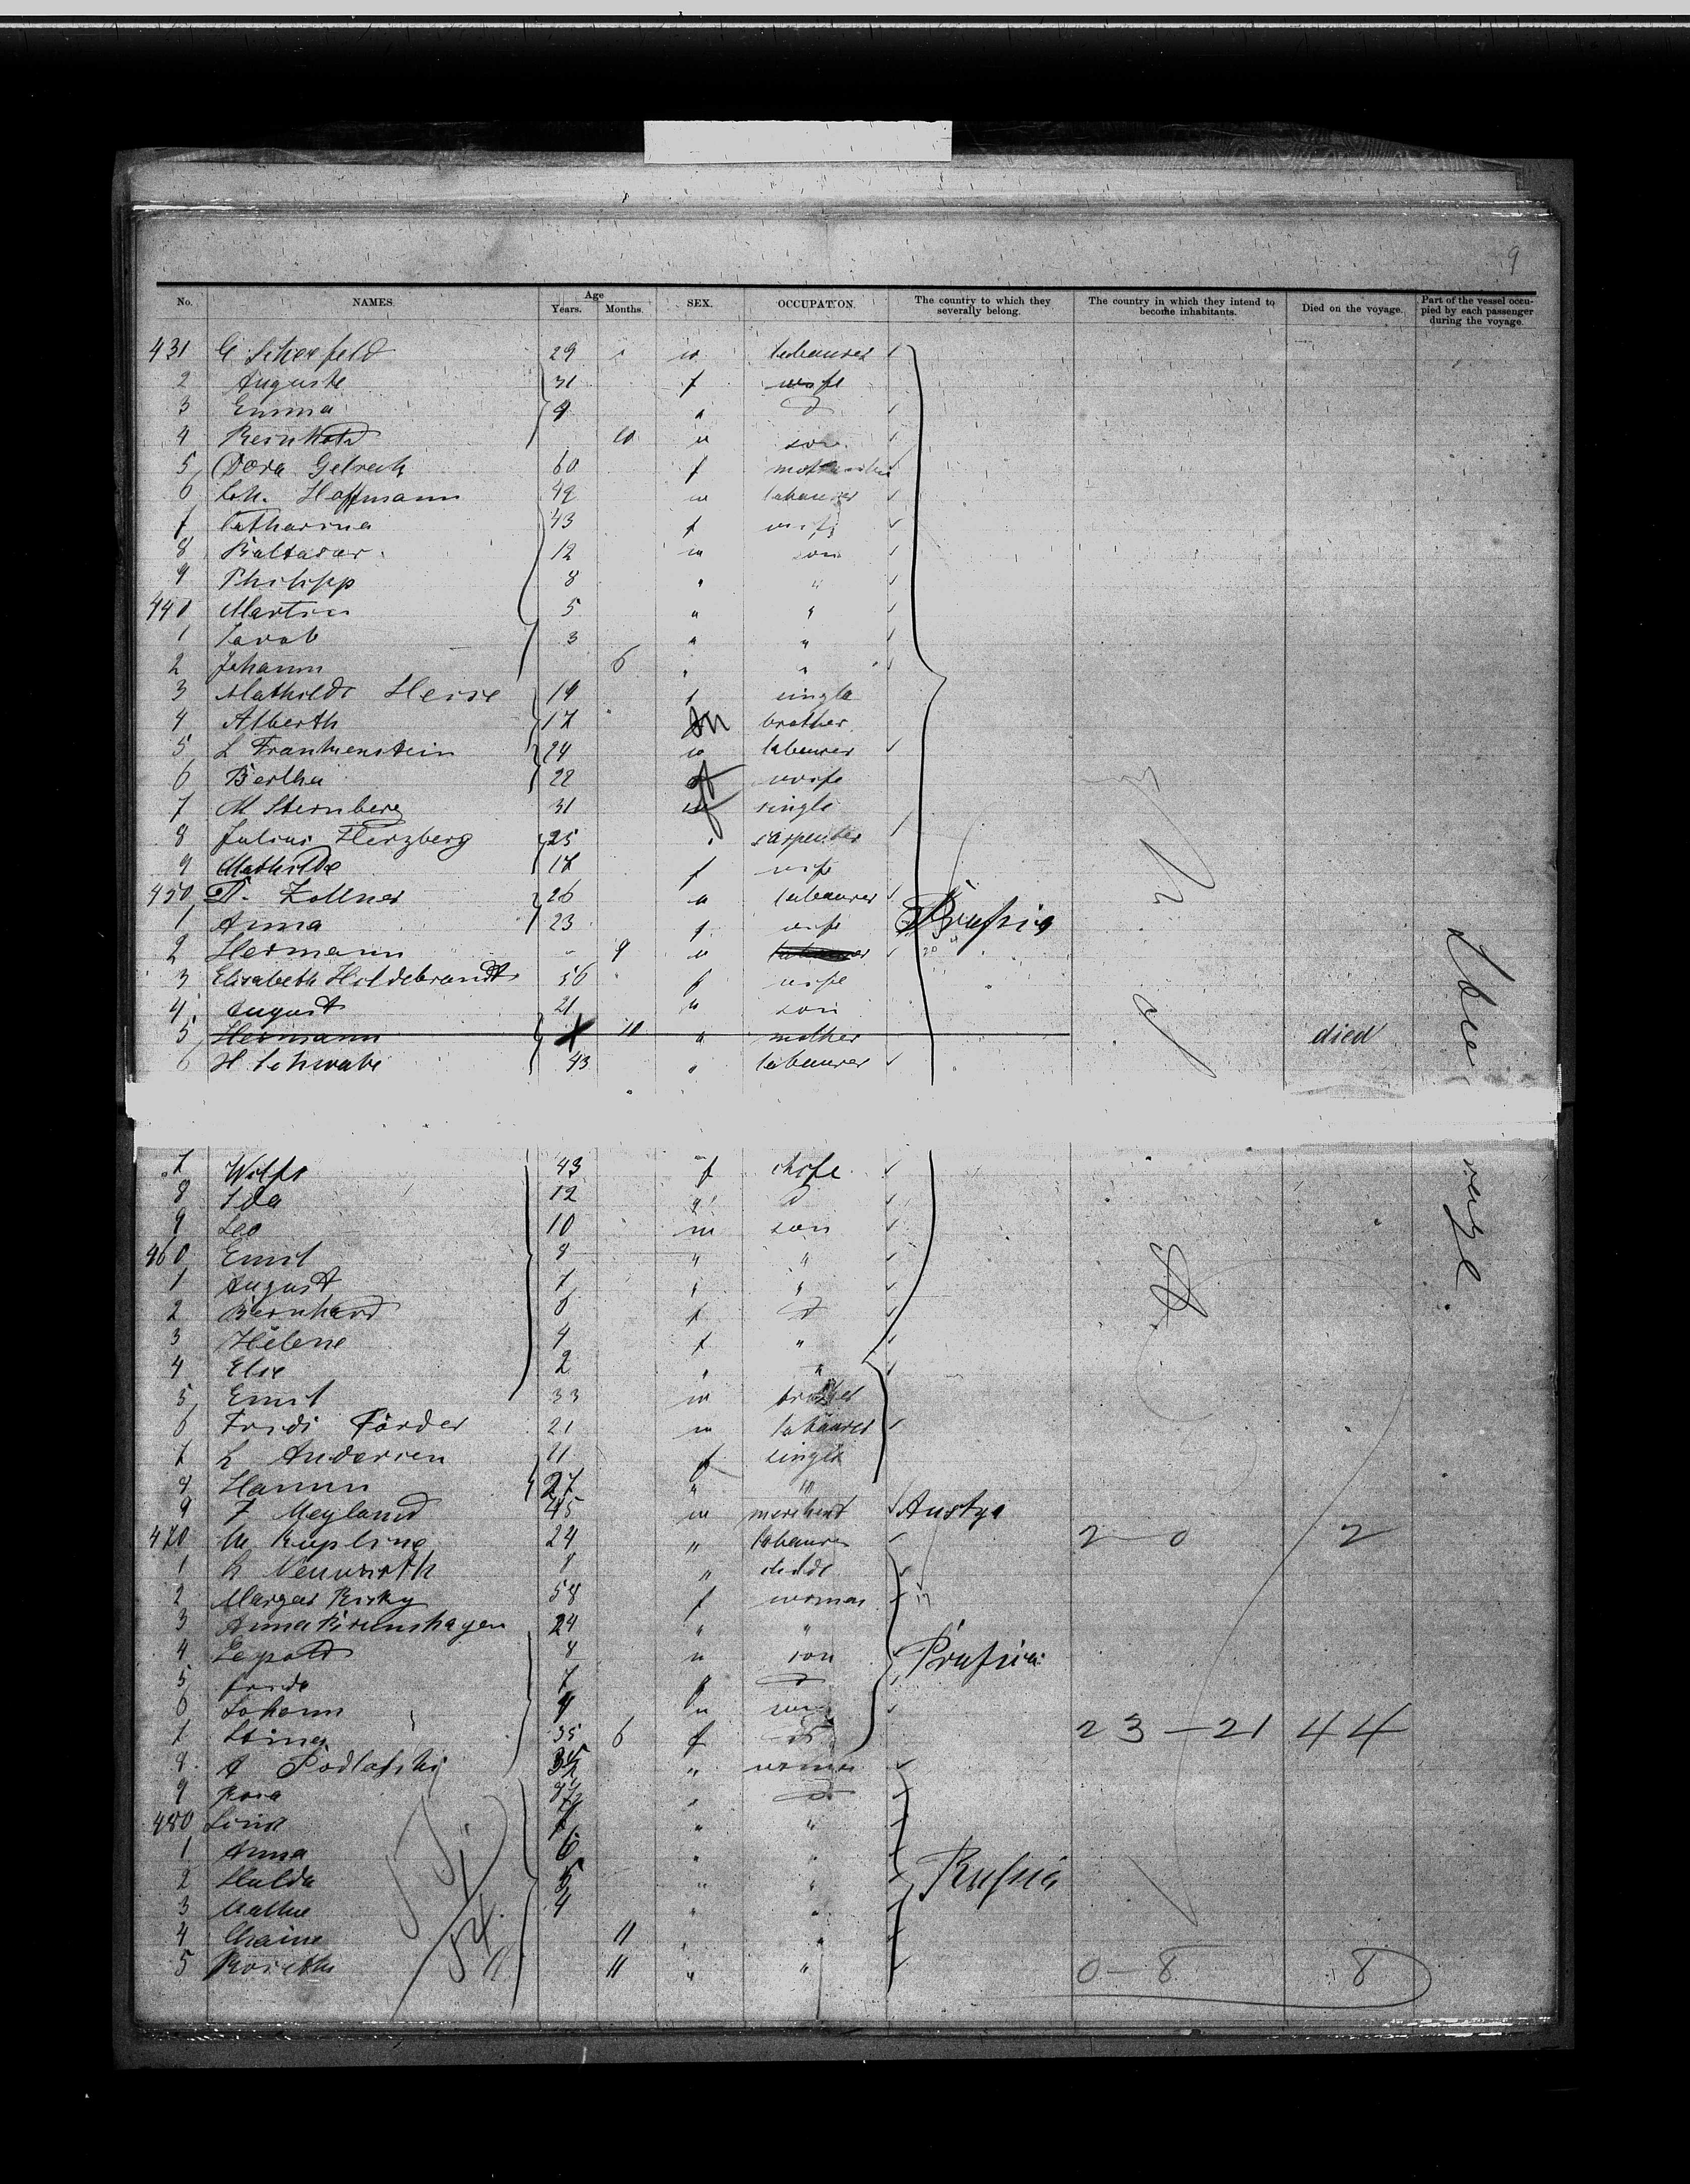 9
No. NAMES. Age Years. Months. SEX. OCCUPATION. The country to which they severally belong. The country in which they intend to become inhabitants. Died on the voyage. Part of the vessel occupied by each passenger during the voyage.
431 G Scherfeld 29 m labourer
2 Auguste 31 f wife
3 Emma 9 " d
4 Reinhold 10 m son
5 Dora Gelrech 60 f
6 Joh. Hoffmann 42 m labourer
7 Catharina 43 f wife
8 Baltasar 12 m son
9 Philipp 8 " "
440 Martin 5 " "
1 Jacob 3 " "
2 Johann 6 " "
3 Mathilde Hesse 19 f single
4 Alberth 17 m brother
5 L Frankenstein 24 m labourer
6 Bertha 22 f wife
7 M Sternberg 31 single
8 Julius Herzberg 25 " carpenter
9 Mathilde 17 f wife
450 D. Zollner 26 m labourer
1 Anna 23 f wife Prussia
2 Hermann - 9 m labourer
3 Elisabeth Hildebrandt 56 f wife
4 August 21 m son
5 Hermann 10 " mother died
6 H Schwabe 43 " labourer
7 43 f wife
8 Ida 12 " d
9 Leo 10 m son
460 Emil 8 " "
1 August 7 " "
2 Bernhard 6 f d
3 Helene 4 f "
4 Else 2 " "
5 Ernst 33 m brother
6 Förder 21 m labourer
7 L Andersen 11 f single
8 Hanna 27 " "
9 F Meyland 45 m merchant Austya
470 M Kupling 24 " labourer 2 0 2
1 L Neuwirth 1 "
2 Margar 58 f woman
3 Anna Brunshagen 24 " "
4 Lepold 8 m son Prussia
5 Frida 7 " d
6 Johann 4 m son
7 Stina 35 6 f 23 - 21 44
8 A Podlafski " woman
9 Rosa " d
480 Lina " "
1 Anna 6 " "
2 Hulda 5 " " Russia
3 4 " "
4 Chaine 11 " "
5 11 " " 0 - 8 8